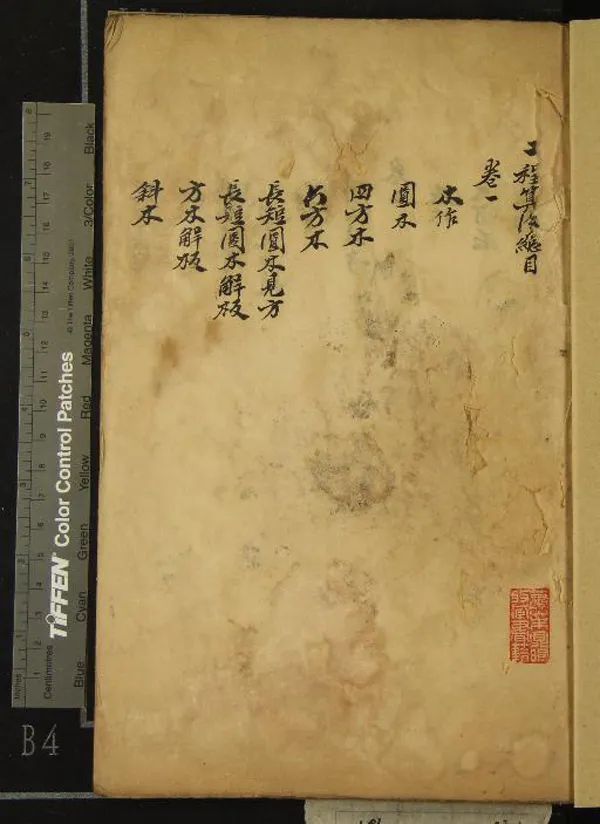 工程算法總目
卷一
木作
圓木
四方木
六方木
長短圓木見方
長短圓木解板
方木解板
斜木
TIFFEN Color Control Patches
© The Tiffen Company, 2007
Inches
Centimetres
1 2 3 4 5 6 7 8 9 10 11 12 13 14 15 16 17 18 19
Blue
Cyan
Green
Yellow
Red
Magenta
White
3/Color
Black
B4